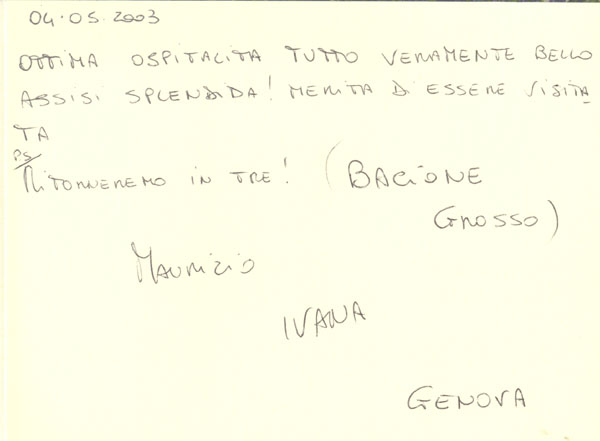 04.05.2003
OTTIMA OSPITALITA TUTTO VERAMENTE BELLO
ASSISI SPLENDIDA! MERITA DI ESSERE VISITA
TA
PS/
RITORNEREMO IN TRE! (BACIONE
GROSSO)
MAURIZIO
IVANA
GENOVA